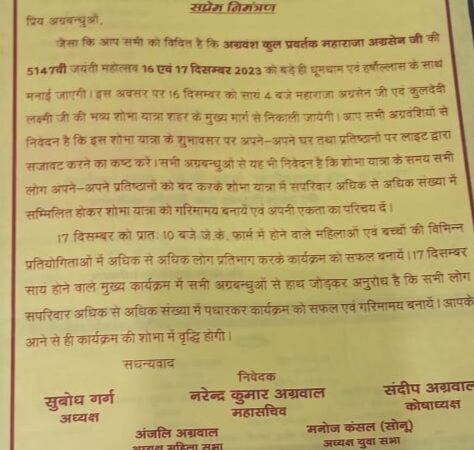 सप्रेम निमंत्रण
प्रिय अग्रबन्धुओं,
जैसा कि आप सभी को विदित है कि अग्रवंश कुल प्रवर्तक महाराजा अग्रसेन जी की
5147वी जयंती महोत्सव 16 एवं 17 दिसम्बर 2023 को बड़े ही धूमधाम एवं हर्षोल्लास के साथ
मनाई जाएगी। इस अवसर पर 16 दिसम्बर को सायं 4 बजे महाराजा अग्रसेन जी एवं कुलदेवी
लक्ष्मी जी की भव्य शोभा यात्रा शहर के मुख्य मार्ग से निकाली जायेगी। आप सभी अग्रवंशियों से
निवेदन है कि इस शोभा यात्रा के शुभावसर पर अपने-अपने घर तथा प्रतिष्ठानों पर लाइट द्वारा
सजावट करने का कष्ट करें। सभी अग्रबन्धुओं से यह भी निवेदन है कि शोभा यात्रा के समय सभी
लोग अपने-अपने प्रतिष्ठानों को बंद करके शोभा यात्रा में सपरिवार अधिक से अधिक संख्या में
सम्मिलित होकर शोभा यात्रा को गरिमामय बनायें एवं अपनी एकता का परिचय दें।
17 दिसम्बर को प्रातः 10 बजे जे.के. फार्म में होने वाले महिलाओं एवं बच्चों की विभिन्न
प्रतियोगिताओं में अधिक से अधिक लोग प्रतिभाग करके कार्यक्रम को सफल बनायें। 17 दिसम्बर
सायं होने वाले मुख्य कार्यक्रम में सभी अग्रबन्धुओं से हाथ जोड़कर अनुरोध है कि सभी लोग
सपरिवार अधिक से अधिक संख्या में पधारकर कार्यक्रम को सफल एवं गरिमामय बनायें। आपके
आने से ही कार्यक्रम की शोभा में वृद्धि होगी।
सधन्यवाद
निवेदक
सुबोध गर्ग नरेन्द्र कुमार अग्रवाल संदीप अग्रवाल
अध्यक्ष महासचिव कोषाध्यक्ष
अंजलि अग्रवाल मनोज कंसल (सोनू)
अध्यक्ष महिला सभा अध्यक्ष युवा सभा